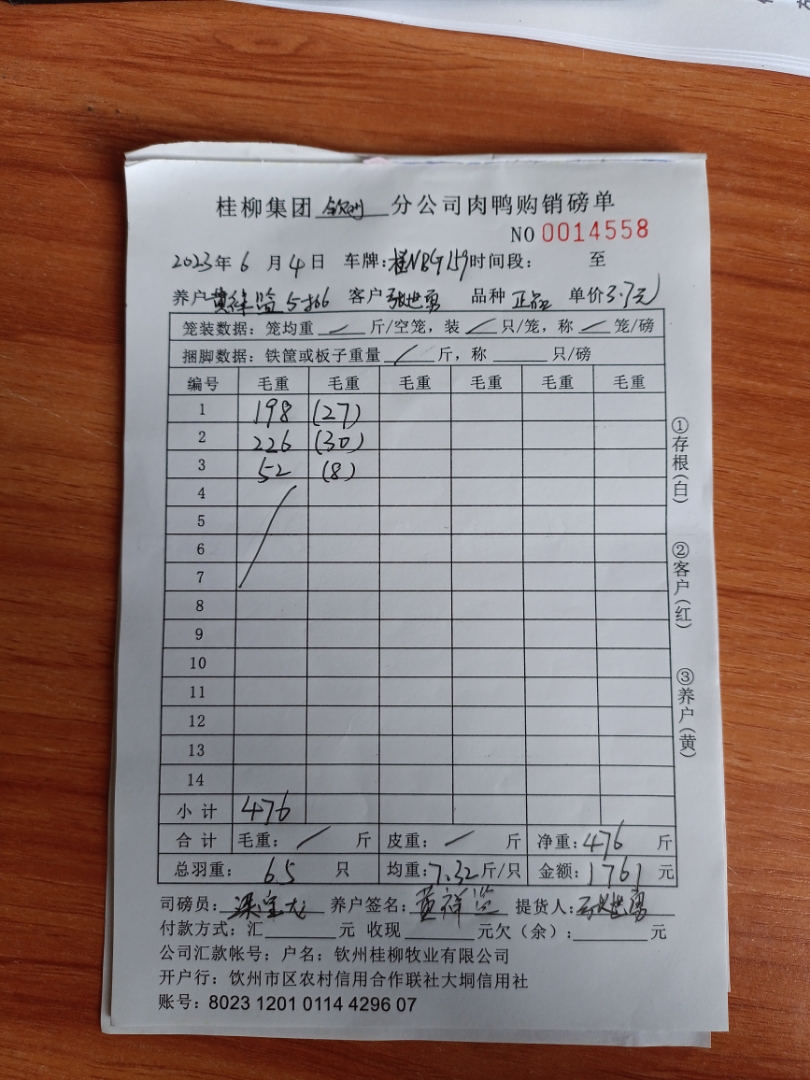 桂柳集团 钦州 分公司肉鸭购销磅单
NO 0014558
2023年 6 月 4 日 车牌:桂NBG159 时间段: 至
养户 黄祥益 5-366 客户 张世勇 品种 正品 单价 3.7元
笼装数据: 笼均重 / 斤/空笼, 装 / 只/笼, 称 / 笼/磅
捆脚数据: 铁筐或板子重量 / 斤, 称 只/磅
编号 毛重 毛重 毛重 毛重 毛重 毛重
1 198 (27)
2 226 (30)
3 52 (8)
4
5
6
7
8
9
10
11
12
13
14
小计 476
合计 毛重: / 斤 皮重: / 斤 净重: 476 斤
总羽重: 65 只 均重: 7.32 斤/只 金额: 1761 元
司磅员: 养户签名: 黄祥益 提货人: 张世勇
付款方式: 汇 元 收现 元欠(余): 元
公司汇款帐号: 户名: 钦州桂柳牧业有限公司
开户行: 钦州市区农村信用合作联社大垌信用社
账号: 8023 1201 0114 4296 07
①存根(白)
②客户(红)
③养户(黄)